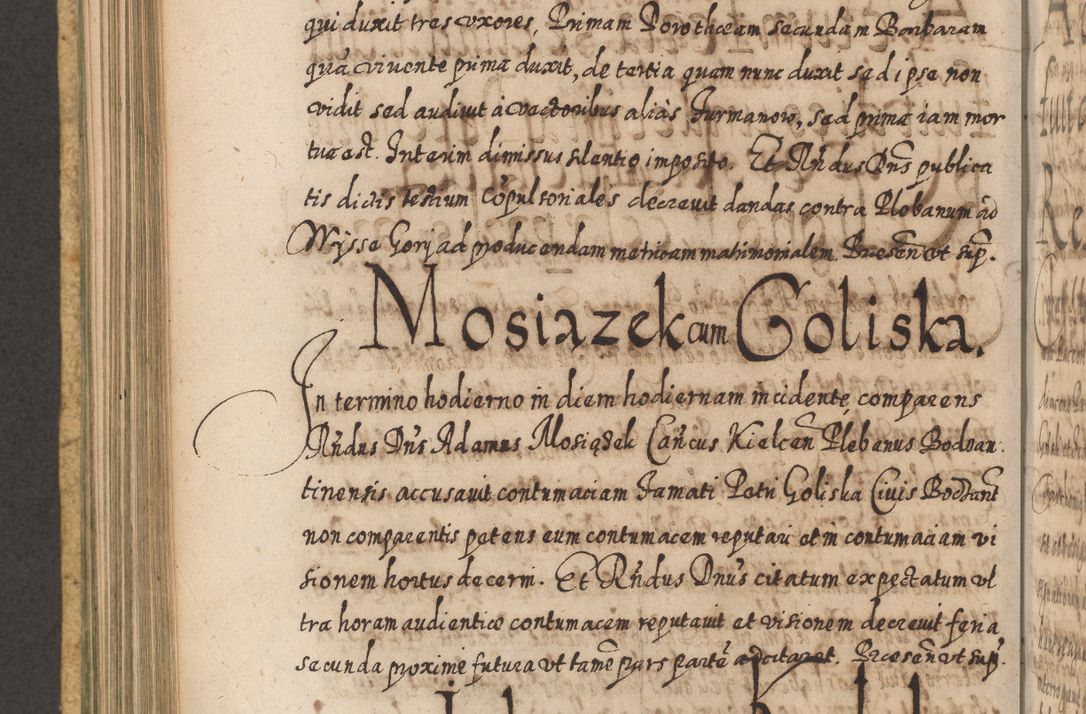 qui duxit tres uxores, Primam Dorotheam secundam Barbaram
quā vivente prima duxit, de tertia quam nunc duxit sed ipse non
vidit sed audivit à vectoribus aliàs Furmanow, sed prima iam mor
tua est. Interim dimissus silentio imposito. Et Rñdus Dñs publica
tis dictis testium cōpulsoriales decrevit dandas contra Plebanum ad
Wysse Gorj ad producendam metricam matrimonialem. Præsen̄ ut sup.
Mosiązek cum Goliska.
In termino hodierno in diem hodiernam incidentę comparens
Rñdus Dñs Adamus Mosiązek Cañcus Kielcen̄ Plebanus Bodzan
tinensis accusavit contumaciam Famati Petri Goliska Civis Bodzant
non comparentis petens eum contumacem reputari et in contumaciam vi
sionem hortus decerni. Et Rñdus Dnūs citatum expectatum vl
tra horam audientiæ contumacem reputavit et visionem decrevit feria
secunda proxime futura vt tamē pars partē adcitaret. Præsen̄ vt sup.